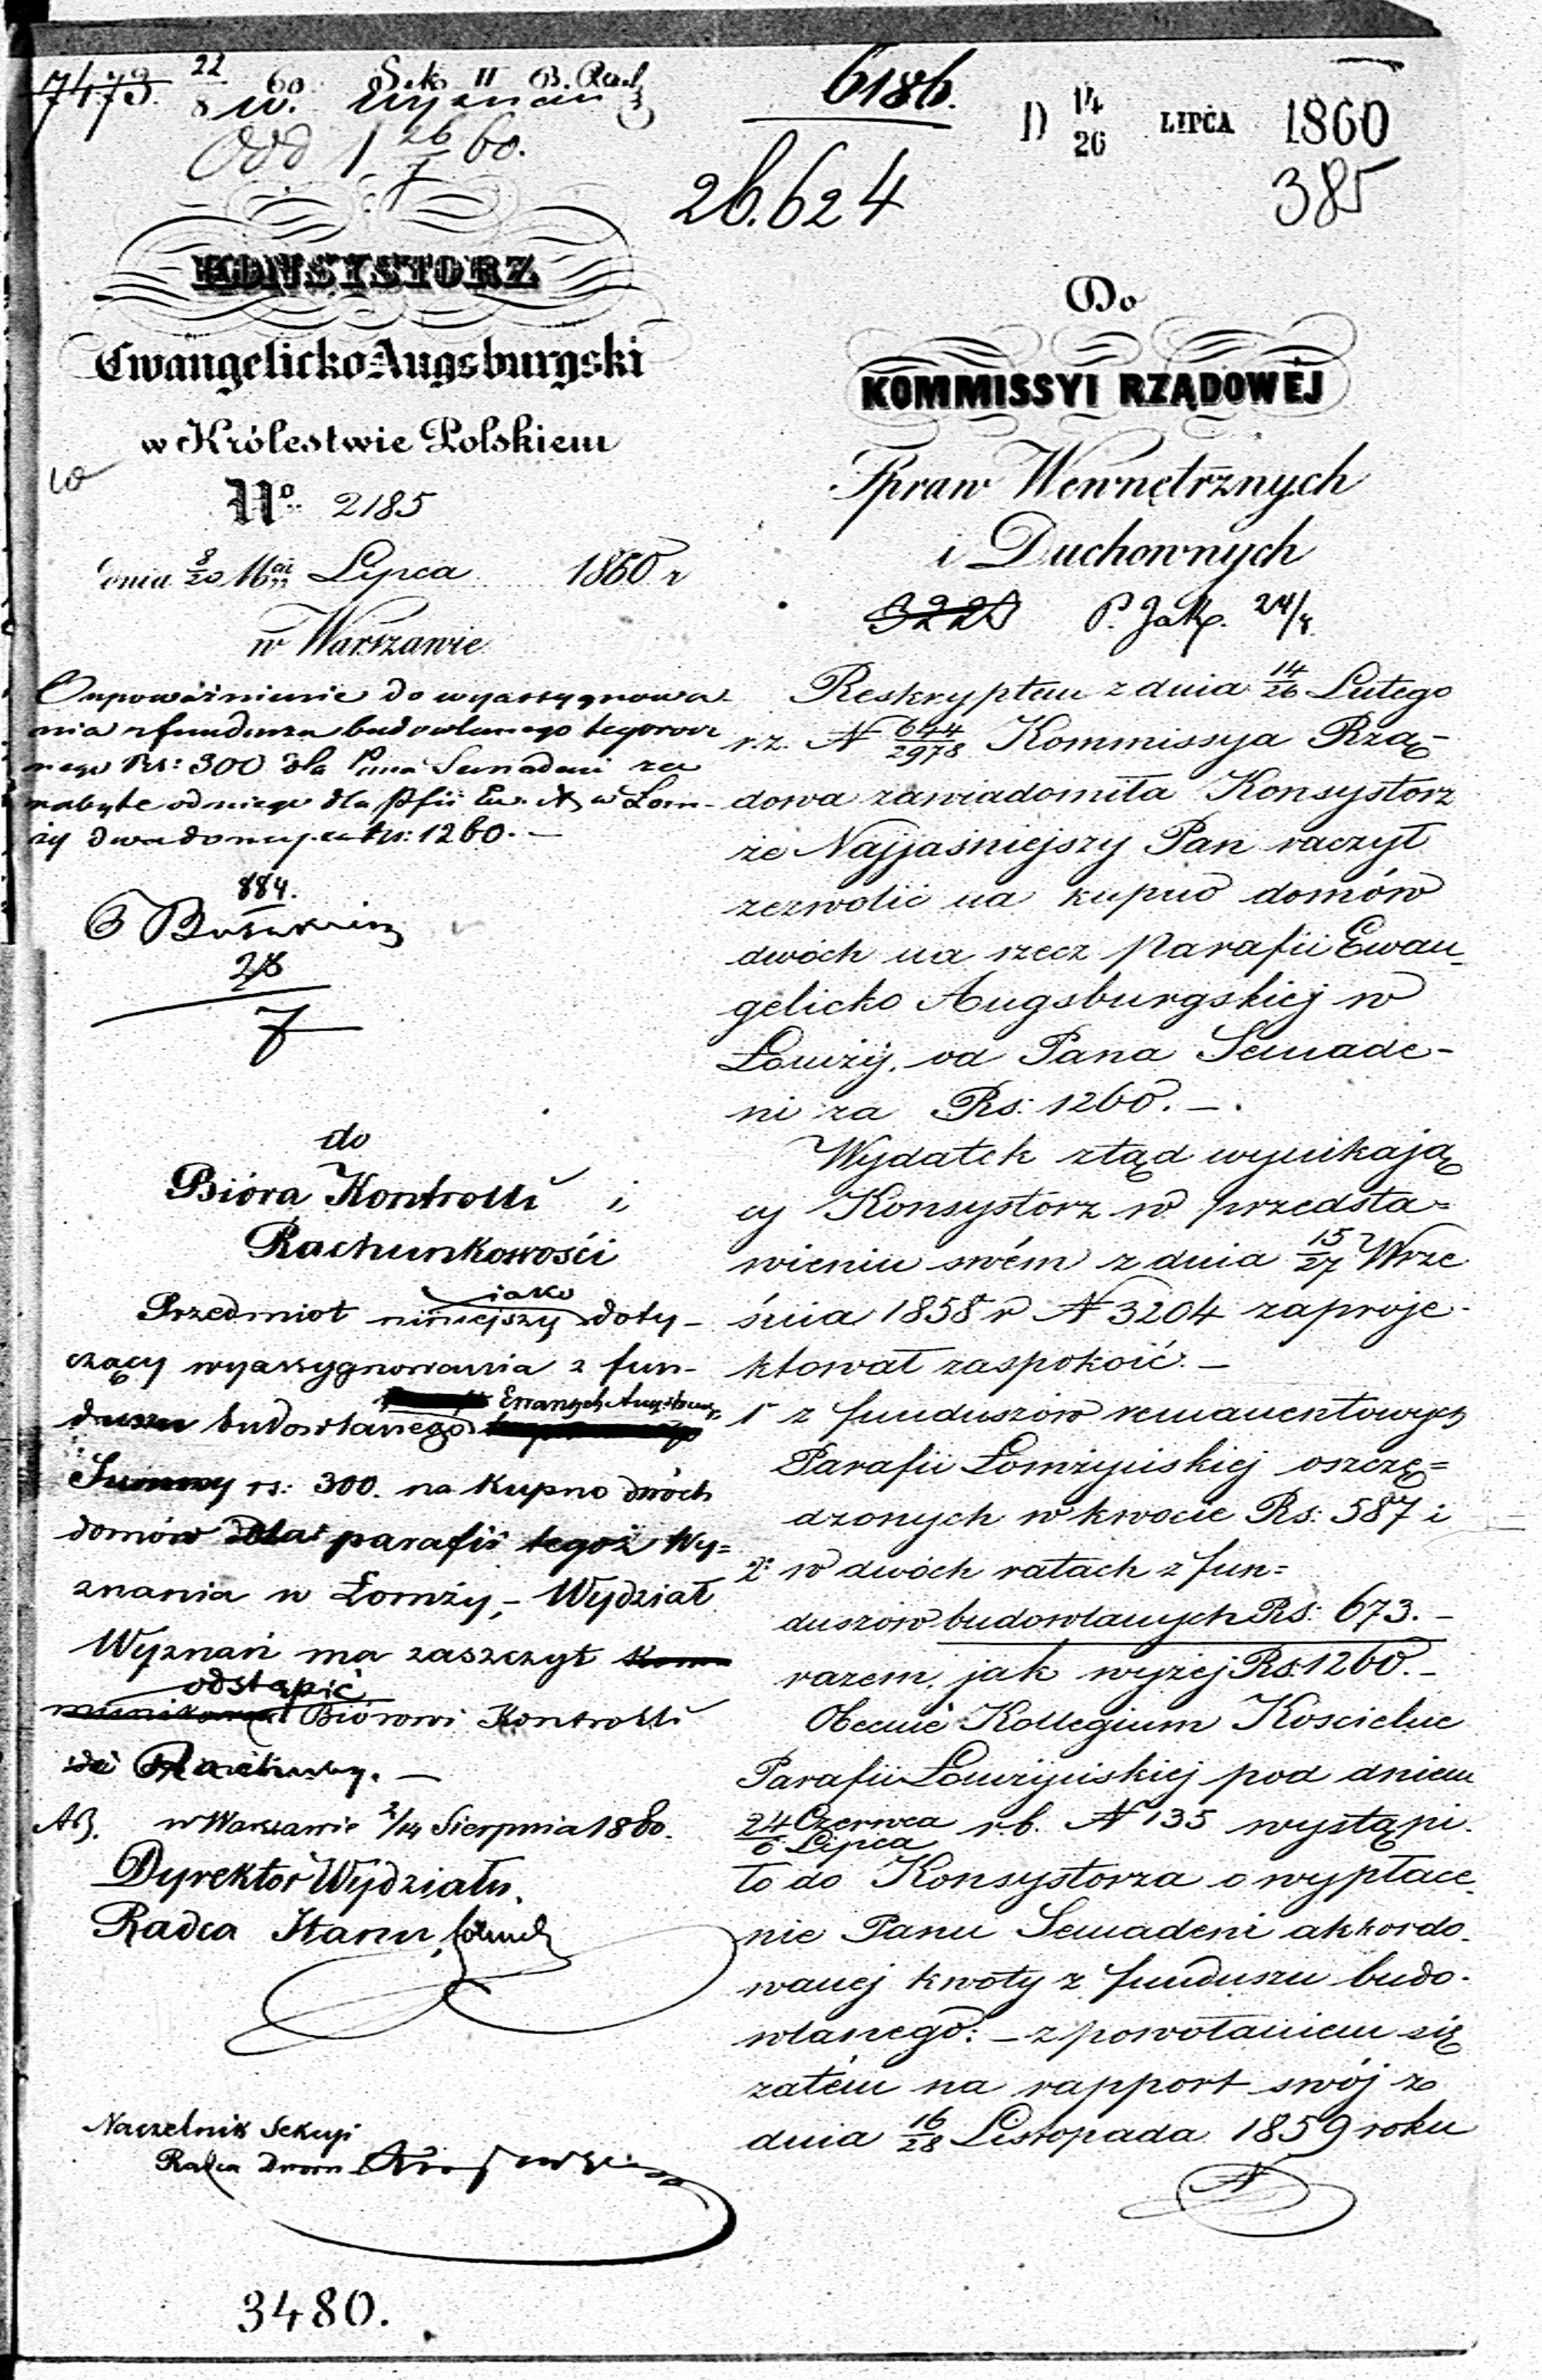 7473. 22 60. Sek II
6186.
D 14/26 LIPCA 1860
Odd 1 26/7 60.
26.624
385
KONSYSTORZ
Ewangelicko-Augsburgski
w Królestwie Polskiem
No. 2185
dnia 8/20 Lipca 1860 r
w Warszawie
Oupoważnienie do wyassygnowa-
nia z funduszu budowlanego tegorocz
nego Rs: 300 dla Pana Semadeni za
nabyte od niego dla Pfii Ew. A. w Łom-
ży dwa domy za Rs: 1260. —
884.
28
7
do
Bióra Kontrolli i
Rachunkowości
jako
Przedmiot niniejszy doty-
czący wyassygnowania z fun-
Ewangeli Augsburg.
duszu budowlanego
Summy rs: 300. na kupno dwóch
domów dla parafii tegoż Wy=
znania w Łomży, – Wydział
Wyznań ma zaszczyt kom
odstąpić
munikować Biórowi Kontrolli
w Warszawie 2/14 Sierpnia 1860.
Dyrektor Wydziału,
Radca Stanu,
Naczelnik Sekcyi
Radca Dworu
3480.
Do
KOMMISSYI RZĄDOWÉJ
Spraw Wewnętrznych
i Duchownych
3220 P. Jak. 24/7
Reskryptem z dnia 14/26 Lutego
r.z. N 644/2978 Kommissya Rzą-
dowa zawiadomiła Konsystorz
że Najjaśniejszy Pan raczył
zezwolić na kupno domów
dwóch na rzecz Parafii Ewan-
gelicko Augsburgskiej w
Łomży, od Pana Semade-
ni za Rs: 1260. —.
Wydatek ztąd wynikają
cy Konsystorz w przedsta=
wieniu swém z dnia 15/27 Wrze
śnia 1858 r N 3204 zaproje-
ktował zaspokoić. —
1° z funduszów remanentowych
Parafii Łomżyńskiej oszczę=
dzonych w kwocie Rs: 587 i
2° w dwóch ratach z fun=
duszów budowlanych Rs: 673. —
razem, jak wyżej Rs: 1260. —
Obecnie Kollegium Kościelne
Parafii Łomżyńskiej pod dniem
24 Czerwca/6 Lipca r.b. N 135 wystąpi-
ło do Konsystorza o wypłace-
nie Panu Semadeni akkordo-
wanej kwoty z funduszu budo-
wlanego: — z powołaniem się
zatém na rapport swój z
dnia 16/28 Listopada 1859 roku